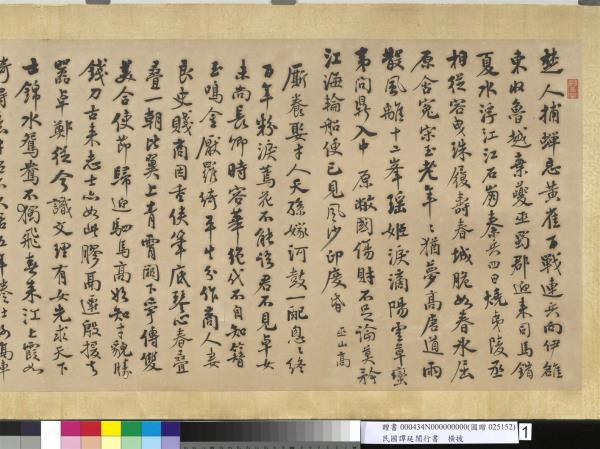 楚人捕蟬忘黃雀百戰連兵向伊雒
東收魯越棄夔巫蜀郡迎來司馬錯
夏水浮江江石崩秦兵四日燒夷陵丞
相從容曳珠履壽春城脆如春冰屈
原含冤宋玉老年年猶夢高唐道雨
散風離十二峯瑤姬淚滴陽雲草蠻
弗問鼎入中原敝國傷財不足論莫矜
江海輪船便已見風沙印度昏 巫山高
廝養娶才人天孫嫁河鼓一配忽忽終
百年粉淚蔫花不能語君不見卓女
未尚長卿時容華絕代不自知簪
玉鳴金厭羅綺平生分作商人妻
良史賤商因重俠筆底琴心春疊
疊一朝比翼上青霄闕下爭傳雙
美合使節歸迎駟馬高始知才貌勝
錢刀古來志士亦如此膠鬲遷殷援
器卓鄭從今識文理有女先求天下
士錦水鴛鴦不獨飛春來江上霞如
贈書 000434N000000000(國贈 025152)
民國譚延闓行書 橫披
1